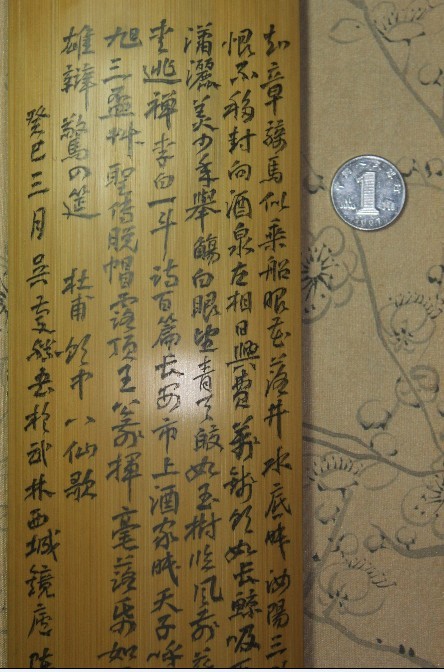 知章騎馬似乘船眼花落井水底眠汝陽三
恨不移封向酒泉左相日興費萬錢飲如長鯨吸
瀟灑美少年舉觴白眼望青天皎如玉樹臨風前
愛逃禪李白一斗詩百篇長安市上酒家眠天子呼
旭三盃草聖傳脫帽露頂王公前揮毫落紙如
雄辯驚四筵 杜甫飲中八仙歌
癸巳三月吳書於武林西城鏡廬
1